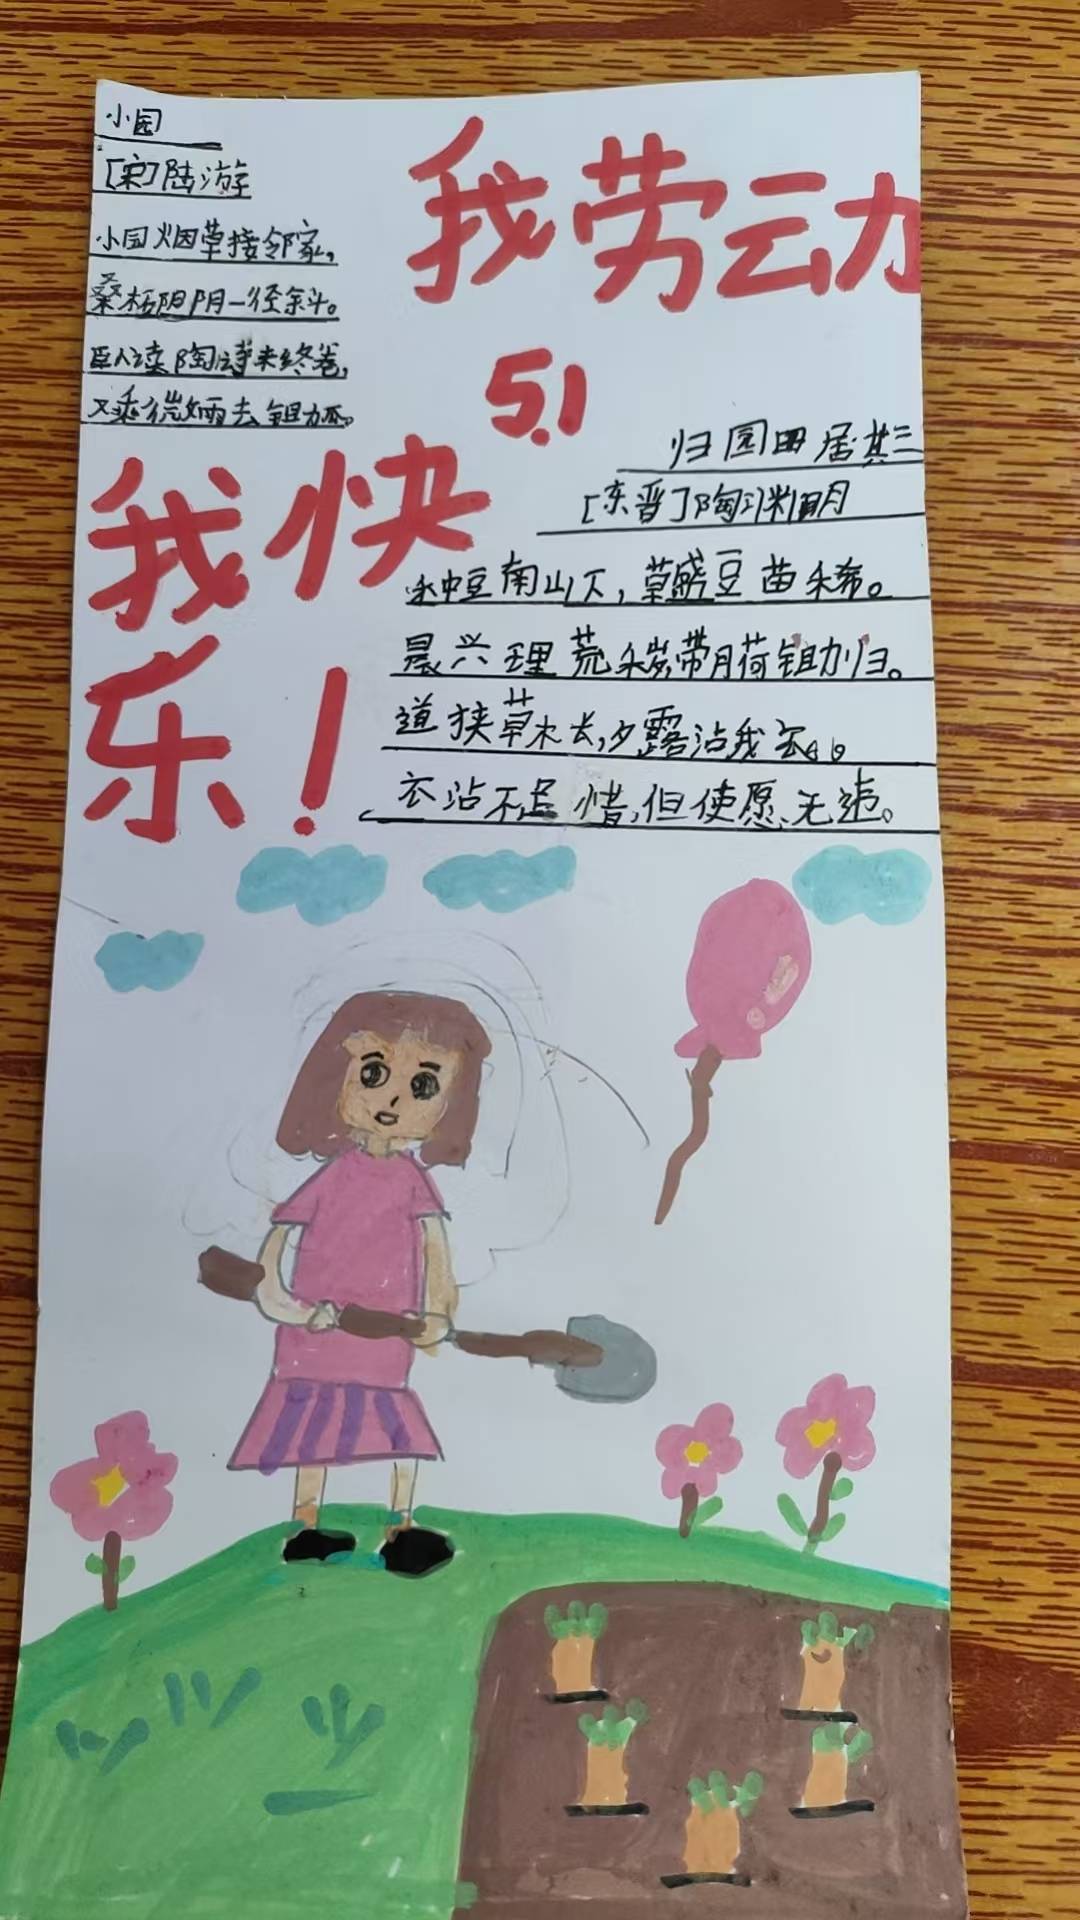 小园
[宋]陆游
小园烟草接邻家，
桑柘阴阴一径斜。
卧读陶诗未终卷，
又乘微雨去锄瓜。
我劳动
5.1
我快
乐！
归园田居其三
[东晋]陶渊明
种豆南山下，草盛豆苗稀。
晨兴理荒秽，带月荷锄归。
道狭草木长，夕露沾我衣。
衣沾不足惜，但使愿无违。